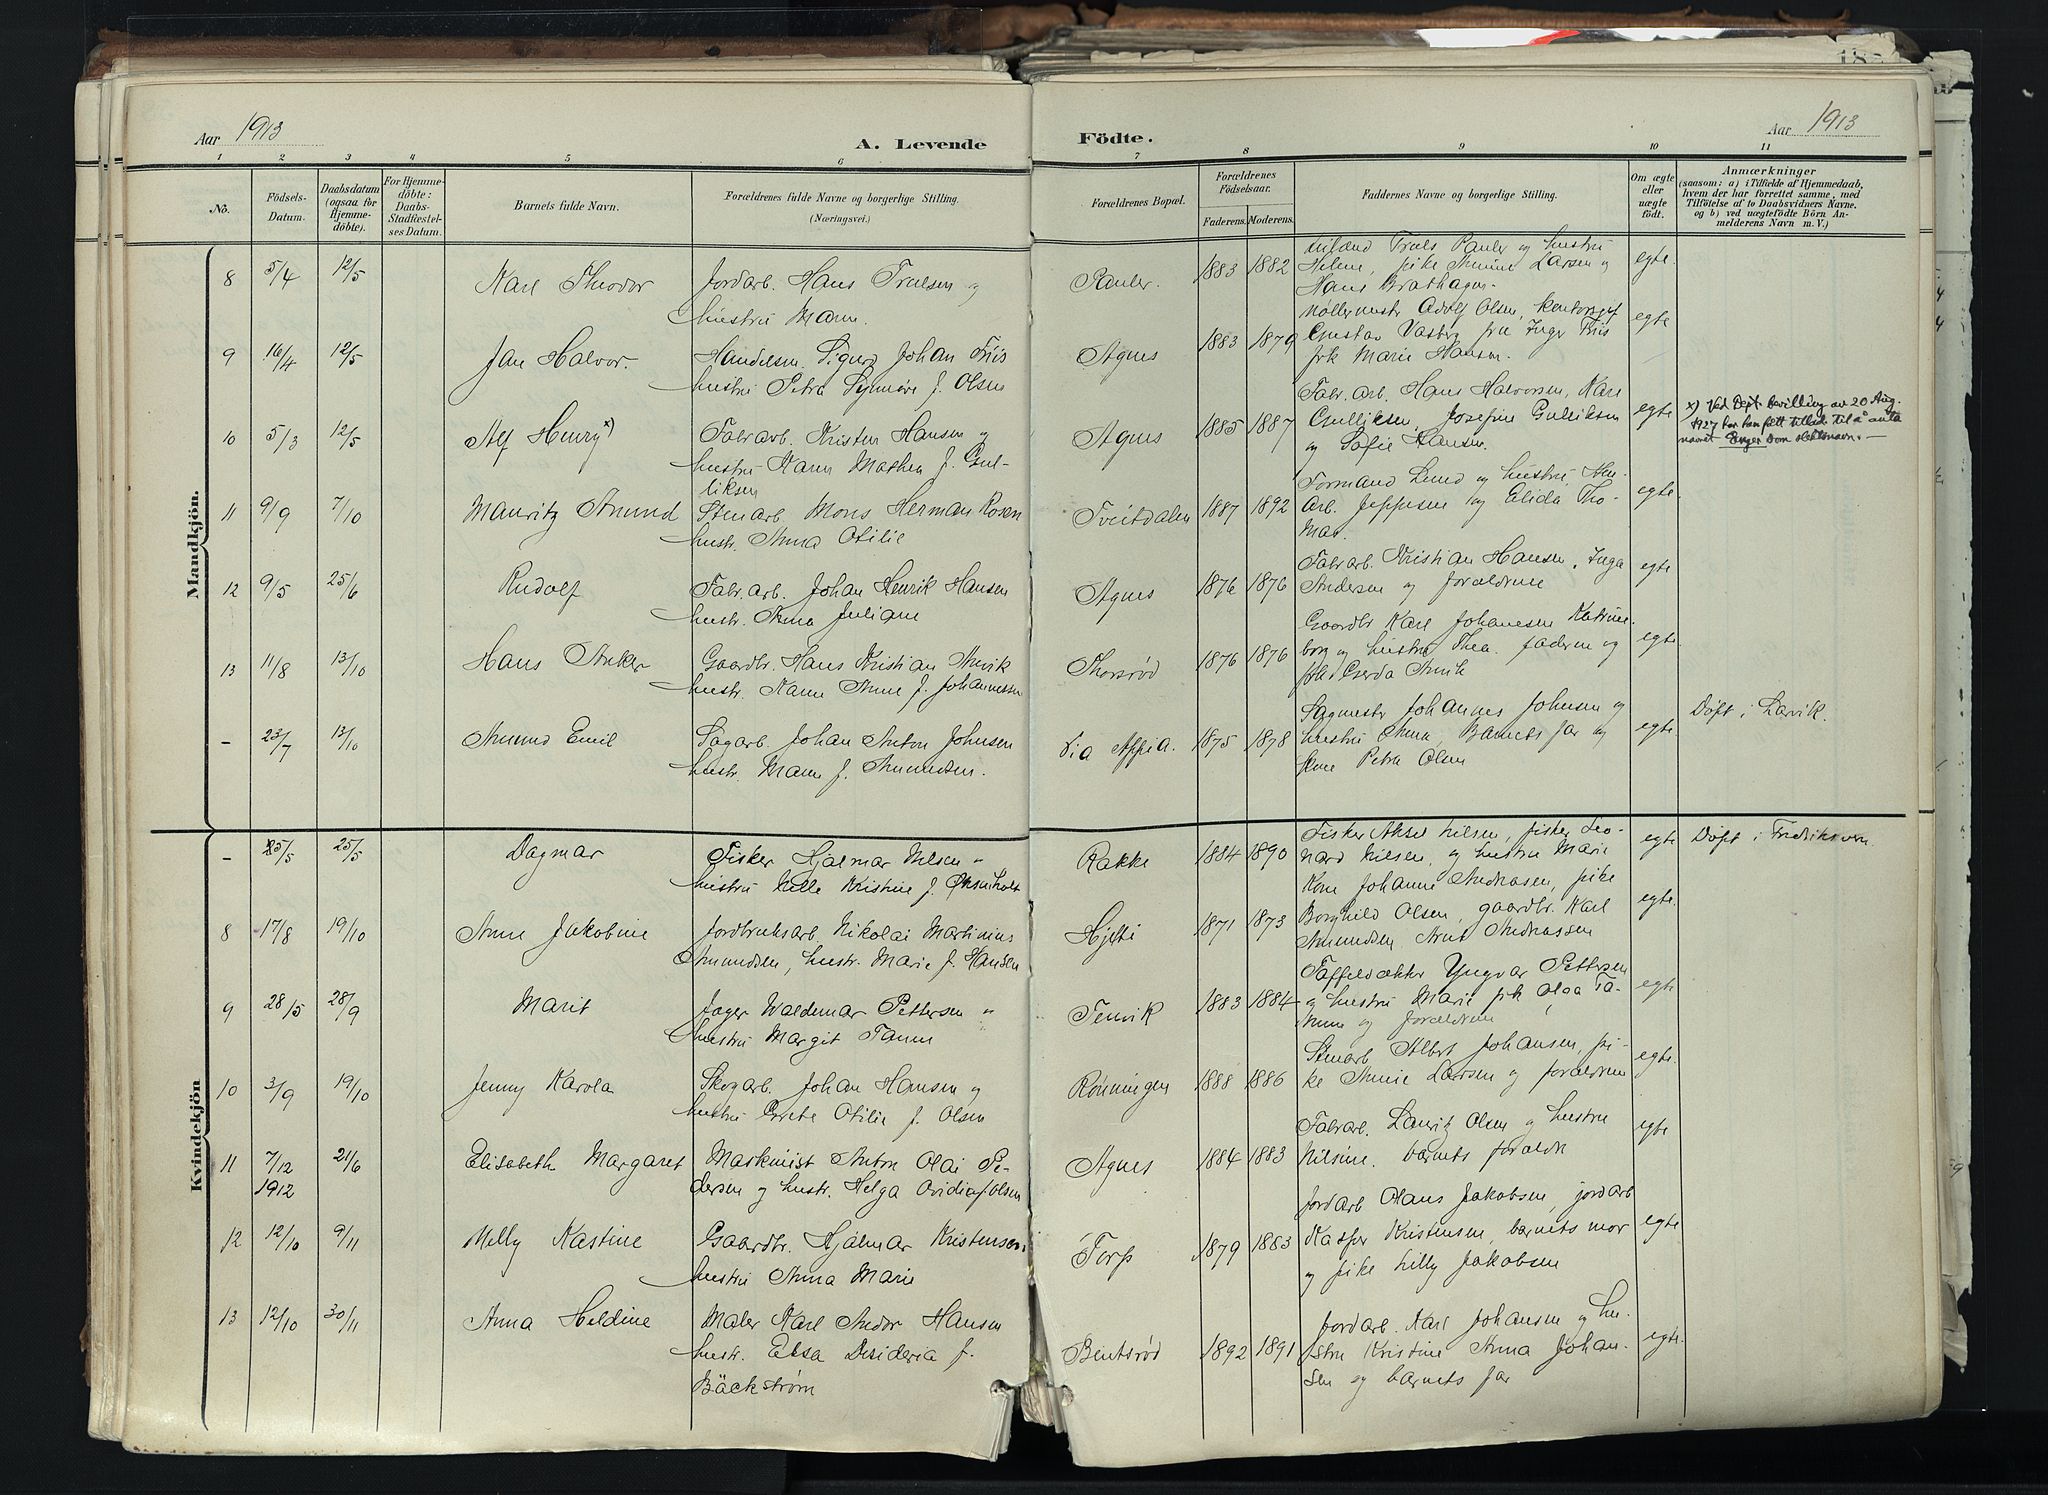 Aar 1913
A. Levende
Födte.
Aar 1913
1 2 3 4 5 6 7 8 9 10 11
No.
Födsels-
Datum.
Daabsdatum
(ogsaa for
Hjemme-
döbte).
For Hjemme-
döbte:
Daabs-
Stadfæstel-
ses Datum.
Barnets fulde Navn.
Forældrenes fulde Navne og borgerlige Stilling.
(Næringsvei.)
Forældrenes Bopæl.
Forældrenes
Födselsaar.
Faderens. Moderens.
Faddernes Navne og borgerlige Stilling.
Om ægte
eller
uægte
födt.
Anmærkninger
(saasom: a) i Tilfælde af Hjemmedaab,
hvem der har forrettet samme, med
Tilföielse af to Daabsvidners Navne.
og b) ved uægtefödte Börn An-
melderens Navn m. V.)
Mandkjön.
8 5/4 12/5 Karl Theodor
Jordarb. Hans Truelsen og
hustru Maren.
Pauler. 1883 1882
Truls Pauler og hustru
Helene, pike Larsen og
Hans
egte.
9 16/4 12/5 Jan Halvor.
Handelsm. Sigurd Johan Friis
hustru Petra Synnøve f. Olsen
Agnes 1883 1879
Møllermestr Adolf Olsen,
Gustav fru Inger Friis
frk Marie Hansen.
egte
10 5/3 12/5 Alf Henry x)
Fabrarb. Kristen Hansen og
hustru Karen Mathea f. Gul-
liksen
Agnes 1885 1887
Fabr. arb. Hans Halvorsen, Karl
Gulliksen, Josefine Gulliksen
og Sofie Hansen.
egte
x) Ved Dept. bevilling av 20 Aug.
1927 har han fått tillatelse til å anta
navnet Enger som slektsnavn. —
11 9/9 7/10 Mauritz Amund
Stenarb Mons Herman Rosen
hustr. Anna Otilie
Tveitdalen 1887 1892
Formand Lund og hustru,
Arb. Jeppesen og Elida Tho-
mas.
egte.
12 9/5 25/6 Rudolf
Fabr. arb. Johan Henrik Hansen
hustr. Anna Juliane
Agnes 1876 1876
Fabr arb. Kristian Hansen, Inga
Andersen og forældrene
egte
13 11/8 13/10 Hans Anker
Gaardbr. Hans Kristian Anvik
hustr. Karen Anne f. Johannessen
Thorsrød 1876 1876
Gaardbr Karl Johannesen Katrine-
borg og hustru Thea. faderen og
Gerda Anvik
egte.
- 23/7 13/10 Amund Emil
Sagarb. Johan Anton Johnsen
hustr. Maren f. Amundsen.
Via Appia. 1875 1878
Sagmestr Johannes Johnsen og
hustru Anna, Barnets far og
Petra Olsen
egte
Døpt i Larvik.
Kvindekjön
- 25/5 Dagmar
Fisker Hjalmar Nilsen og
hustru Nelle Kristine f. Oksenholt
Rakke 1884 1890
Fisker Aksel Nilsen, fisker Leo-
nard Nilsen, og hustru Marie
egte
Døpt i Fredriksvern.
8 17/8 19/10 Anne Jakobine
Jordbruksarb. Nikolai Martinius
Amundsen, hustr. Marie f. Hansen
Hjelti 1871 1873
Kone Johanne Andreasen, pike
Borghild Olsen, gaardbr. Karl
Amundsen, Arnt Andreassen
egte.
9 28/5 28/9 Marit
Jæger Waldemar Pettersen og
hustru Margit Tanum
Tenvik 1883 1884
Taffeldækker Yngvar Pettersen
og hustru Marie frk Olga Ta-
num og forældrene
egte
10 3/9 19/10 Jenny Karola
Skogarb. Johan Hansen og
hustru Grete Otilie f. Olsen
Rønningen 1888 1886
Stenarb Albert Johansen, pi-
ke Annie Larsen og forældrene
egte.
11 7/12
1912
21/6 Elisabeth Margaret
Maskinist Anton Olai Pe-
dersen og hustr. Helga Ovidia f. Olsen
Agnes 1884 1883
Fabrarb. Lauritz Olsen og hustru
Nilsine. barnets foræld
egte
12 12/10 9/11 Melly Kastine
Gaardbr. Hjalmar Kristensen,
hustru Anna Marie
Torp 1879 1883
Jordarb Olaus Jakobsen, jordarb
Kasper Kristensen, barnets mor
og pike Lilly Jakobsen
egte
13 12/10 30/11 Anna Heldine
Maler Karl Andor Hansen
hustr. Elsa Desideria f.
Bäckstrøm
Bentsrød 1892 1891
Jordarb. Karl Johansen og hu-
stru Kristine Anna Johan-
sen og barnets far
egte.